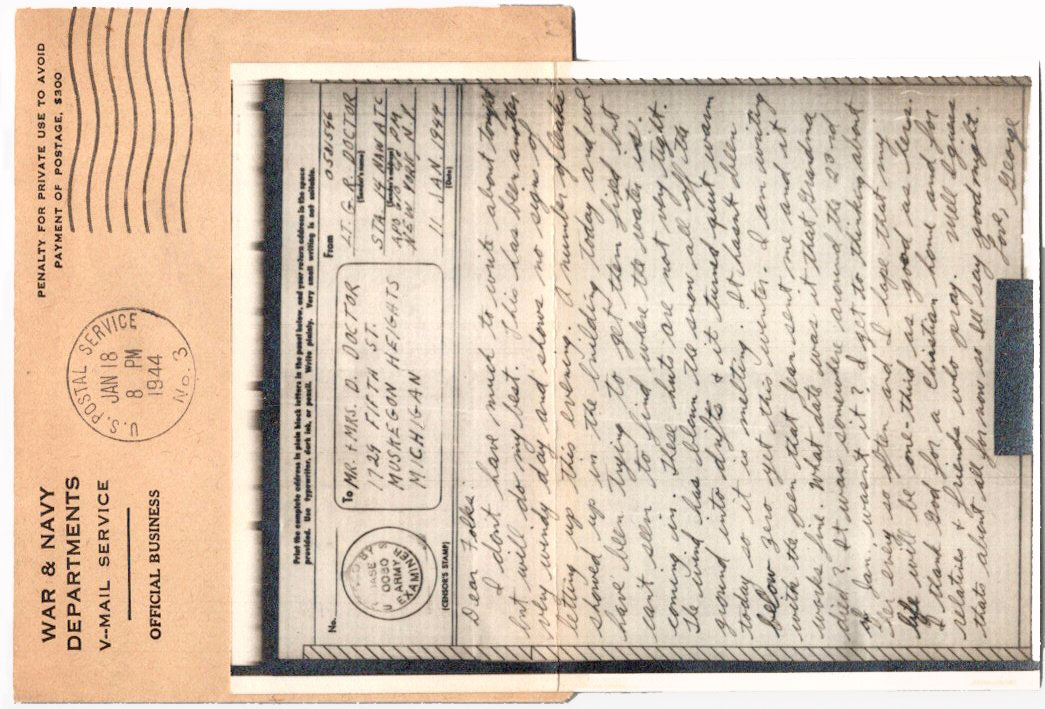 PENALTY FOR PRIVATE USE TO AVOID
PAYMENT OF POSTAGE, $300
U. S. POSTAL SERVICE
JAN 18
8 PM
1944
No. 3
WAR & NAVY
DEPARTMENTS
V--MAIL SERVICE
OFFICIAL BUSINESS
Print the complete address in plain block letters in the panel below, and your return address in the space
provided. Use typewriter, dark ink, or pencil. Write plainly. Very small writing is not suitable.
No.
PASSED BY
BASE
0080
ARMY
EXAMINER
(CENSOR'S STAMP)
To MR. & MRS. D. DOCTOR
1729 FIFTH ST.
MUSKEGON HEIGHTS
MICHIGAN
From
LT. G. R. DOCTOR
(Sender's name)
STA. 14 NAWATC
(Sender's address)
NEW YORK, N.Y.
11 JAN 1944
(Date)
Dear Folks:
I don't have much to write about tonight
but will do my best. This has been another
very windy day and shows no signs of
letting up this evening. A number of leaks
showed up in the building today and we
have been trying to get them fixed but
can't seem to find where the water is
coming in. These huts are not very tight.
The wind has blown the snow all off the
ground into drifts & it turned quit warm
today so it is melting. It hasn't been
below zero yet this winter. I am writing
with the pen that Jean sent me and it
works fine. What date was it that Grandma
died? It was somewhere around the 23rd
of Jan. wasn't it? I get to thinking about
her every so often and I hope that my
life will be one-third as good as hers.
I thank God for a Christian home and for
relatives & friends who pray. Well I guess
thats about all for now so I'll say goodnight.
Love George